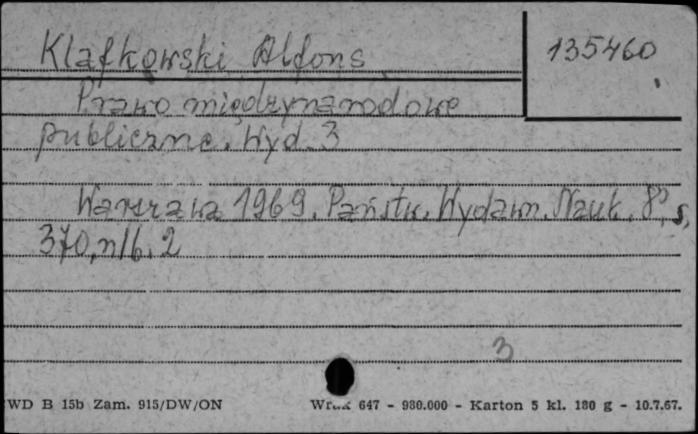 Klafkowski Alfons
135460
Prawo międzynarodowe
publiczne. Wyd. 3
Warszawa 1969. Państw. Wydawn. Nauk. 8°, s.
370, nlb. 2
3
WD B 15b Zam. 915/DW/ON
647 - 980.000 - Karton 5 kl. 180 g - 10.7.67.